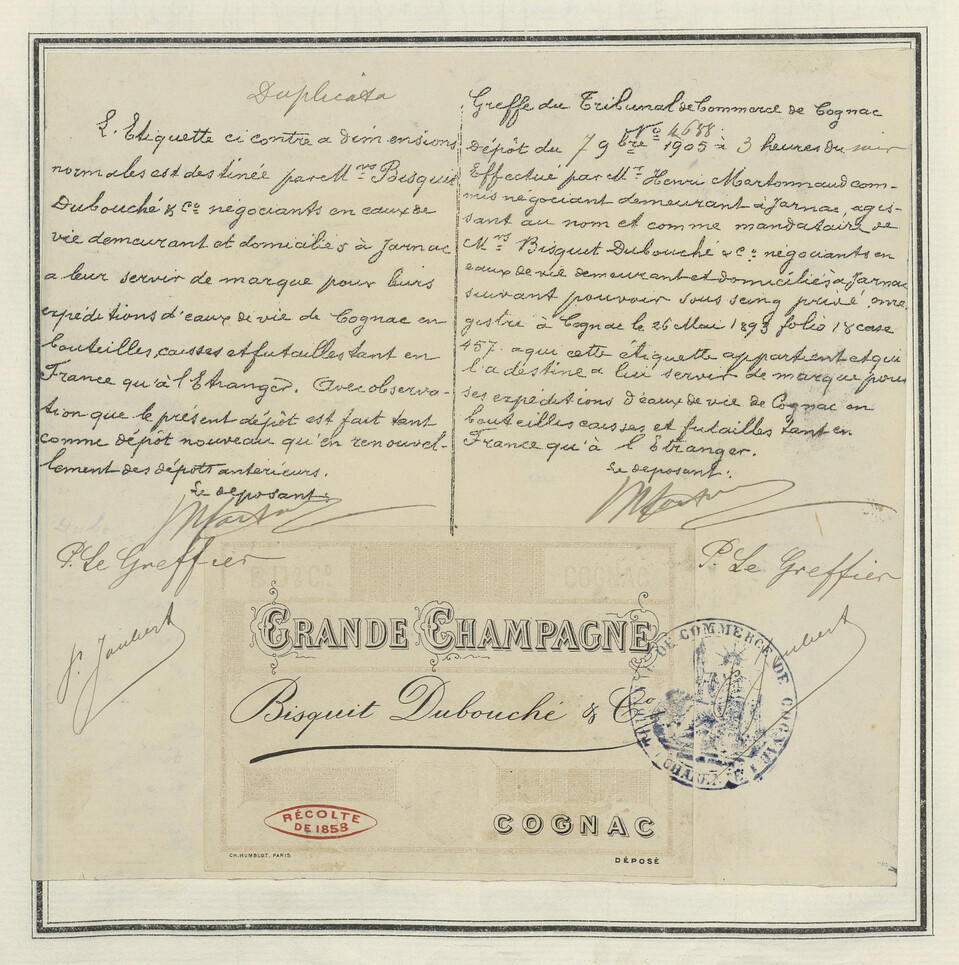 Duplicata
L'Etiquette ci contre a dimensions
normales est destinée par Mrs Bisquit
Dubouché & Co négociants en eaux de
vie demeurant et domiciliés à Jarnac
a leur servir de marque pour leurs
expéditions d'eaux de vie de Cognac en
bouteilles, caisses et futailles tant en
France qu'à l'Etranger. Avec observa-
tion que le présent dépôt est fait tant
comme dépôt nouveau qu'en renouvel-
lement des dépôts antérieurs.
Le deposant.
P. Le Greffier
Joubert
Greffe du Tribunal de Commerce de Cognac
No 4688
Dépôt du 7 9bre 1905 à 3 heures du soir
Effectué par Mr Henri Martonnaud com-
mis négociant demeurant à Jarnac, agis-
sant au nom et comme mandataire de
Mrs Bisquit Dubouché & Co négociants en
eaux de vie demeurant et domiciliés à Jarnac
suivant pouvoir sous seing privé, enre
gistré à Cognac le 26 Mai 1893 folio 18 case
457. a qui cette étiquette appartient et qui
l'a destine a lui servir de marque pour
ses expeditions d'eaux de vie de Cognac en
bouteilles caisses et futailles tant en
France qu'à l'Etranger.
Le deposant.
P. Le Greffier
Joubert
GRANDE CHAMPAGNE
Bisquit Dubouché & Co
RÉCOLTE
DE 1858
COGNAC
CH. HUMBLOT, PARIS
DÉPOSÉ
DE COMMERCE DE COGNAC